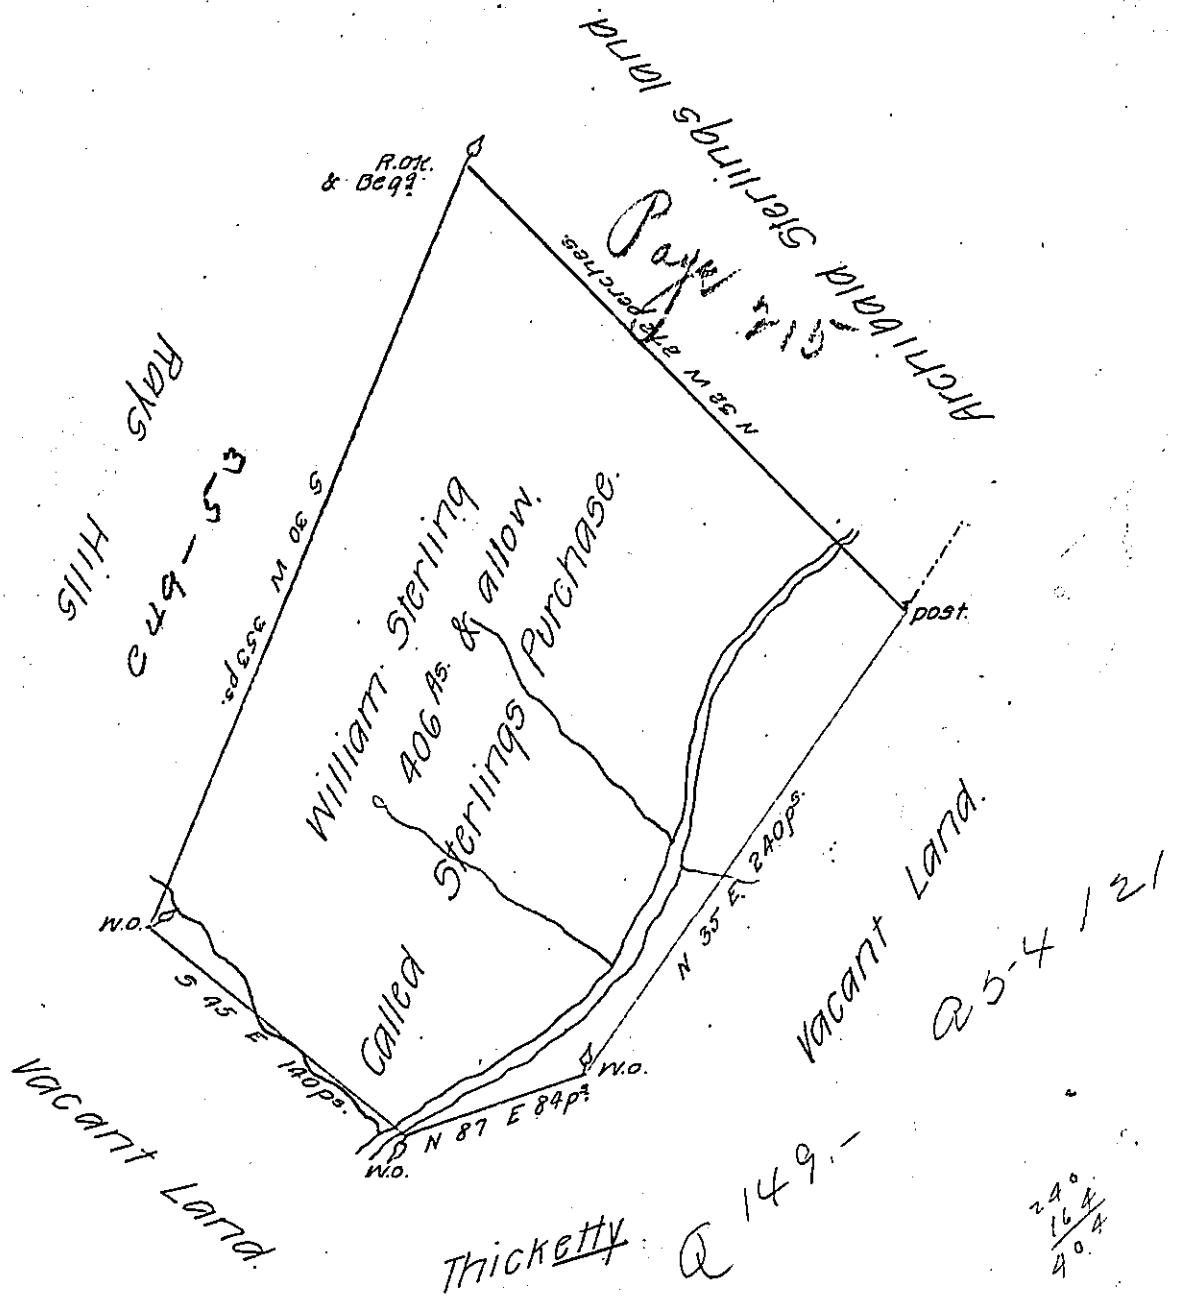 Archibald Sterlings land
R.OK.
& Begg.
N 32 W 272 perches.
Page 215
Rays Hills
C 49-53
S 30 W 353 ps.
William Sterling
406 As. & allow.
Called Sterlings Purchase.
post.
N 35 E. 240ps.
Vacant Land.
W.O.
S 45 E 140ps.
W.O.
N 87 E 84ps
W.O.
Vacant Land.
Thicketty
Q 149.-
240
164
404